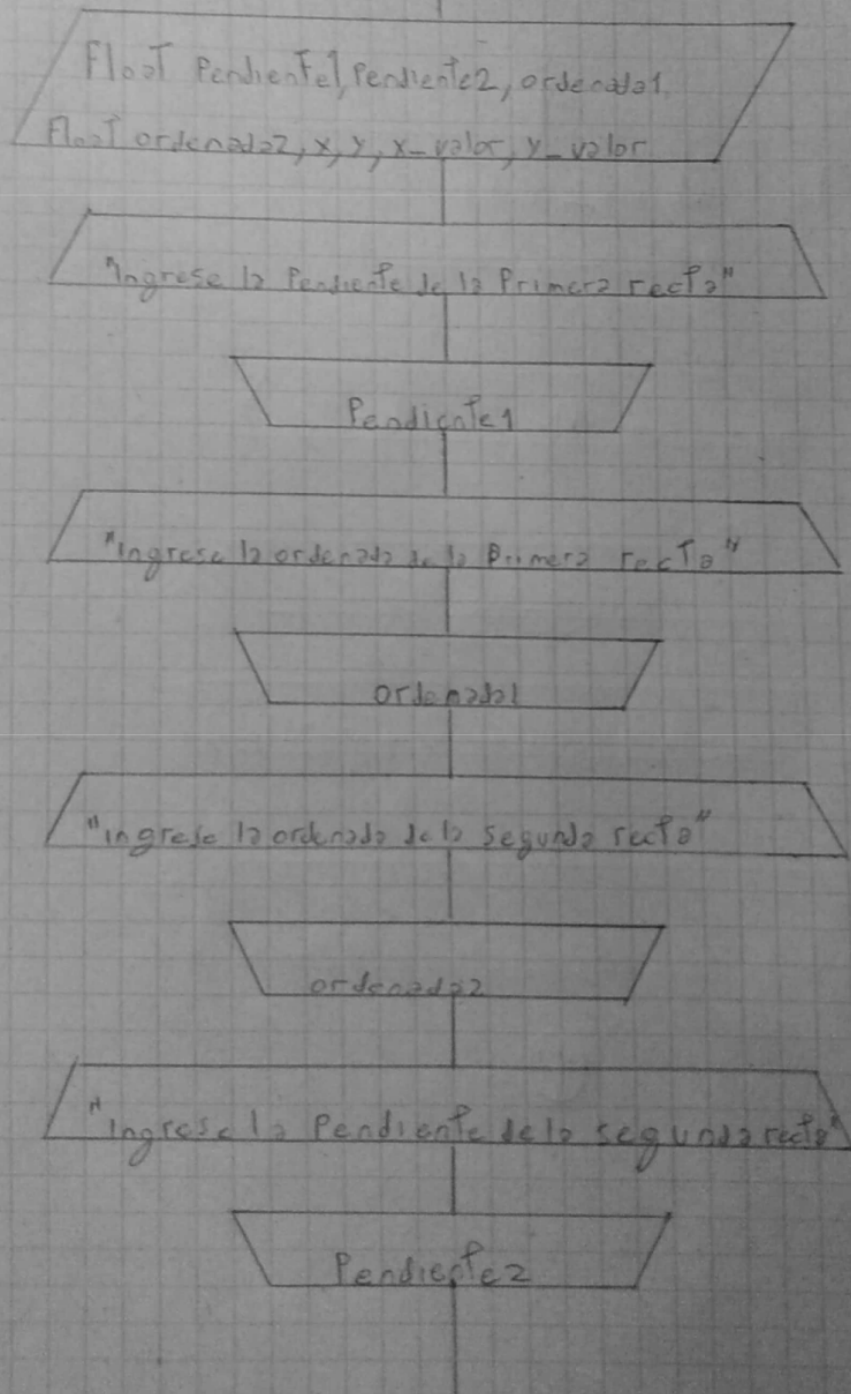 Float Pendiente1, Pendiente2, ordenada1
Float ordenada2, x, y, x_valor, y_valor
"Ingrese la Pendiente de la Primera recta"
Pendiente1
"Ingrese la ordenada de la Primera recta"
ordenada1
"ingrese la ordenada de la segunda recta"
ordenada2
"Ingrese la Pendiente de la segunda recta"
Pendiente2